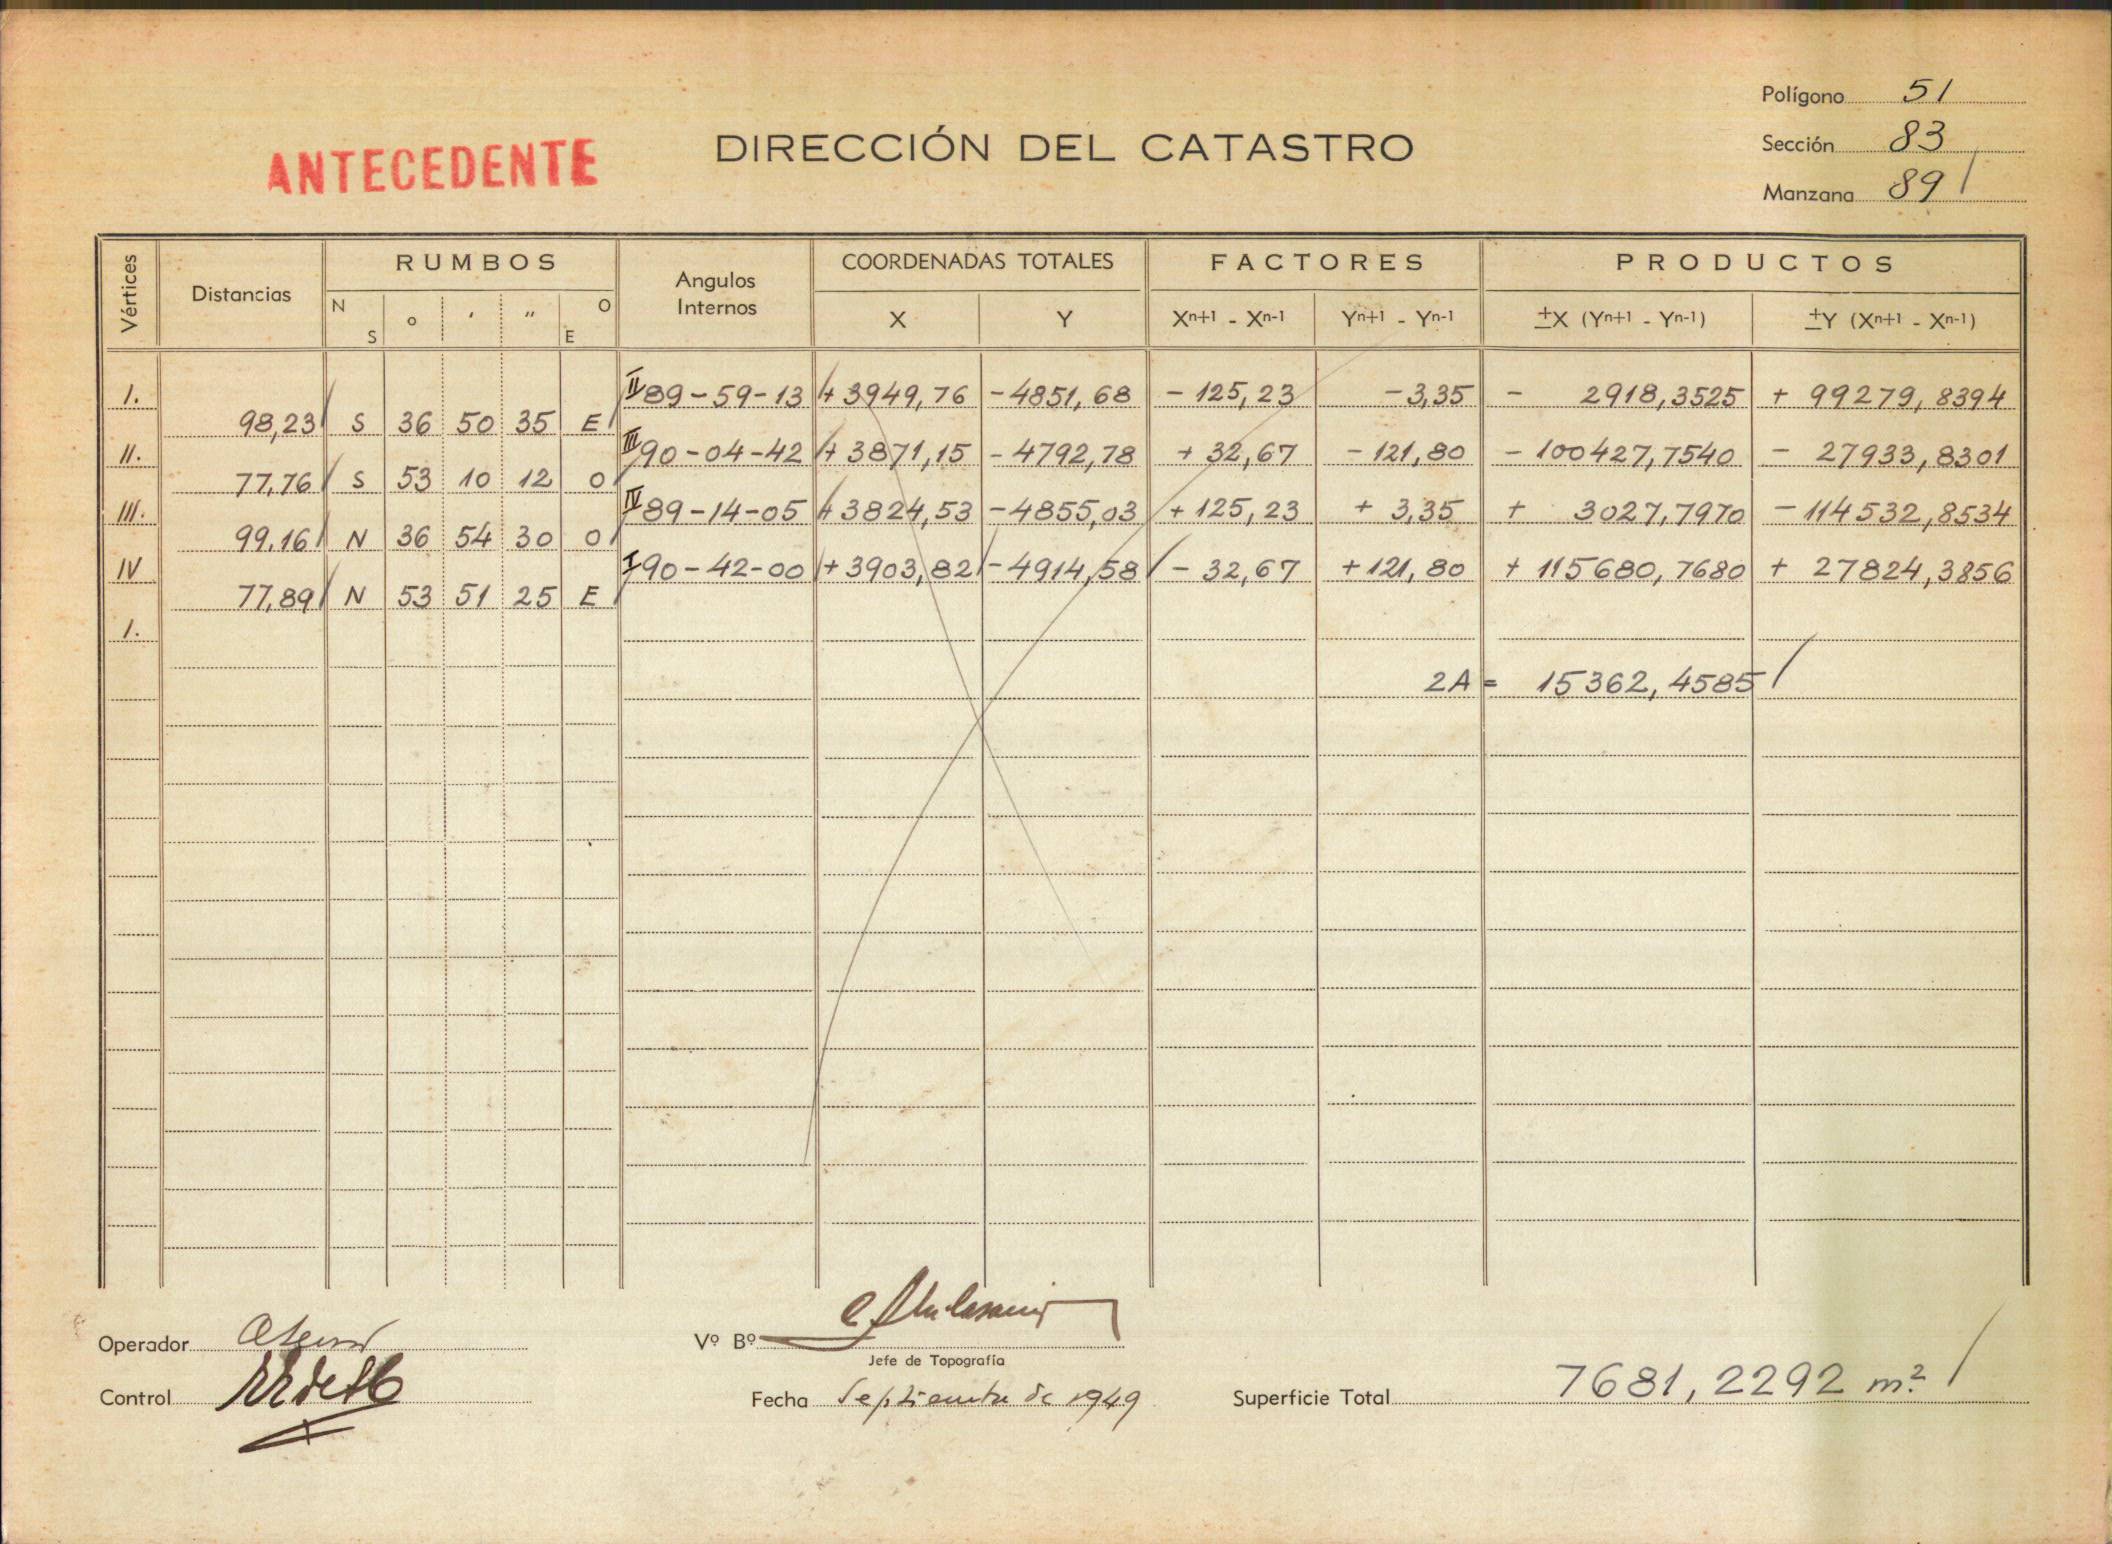 Polígono 51
ANTECEDENTE
DIRECCIÓN DEL CATASTRO
Sección 83
Manzana 89
Vértices Distancias RUMBOS Angulos Internos COORDENADAS TOTALES FACTORES PRODUCTOS
N S o ʹ ʺ O E X Y Xⁿ⁺¹ - Xⁿ⁻¹ Yⁿ⁺¹ - Yⁿ⁻¹ ±X (Yⁿ⁺¹ - Yⁿ⁻¹) ±Y (Xⁿ⁺¹ - Xⁿ⁻¹)
I. II 89-59-13 + 3949,76 - 4851,68 - 125,23 - 3,35 - 2918,3525 + 99279,8394
98,23 S 36 50 35 E
II. III 90-04-42 + 3871,15 - 4792,78 + 32,67 - 121,80 - 100427,7540 - 27933,8301
77,76 S 53 10 12 O
III. IV 89-14-05 + 3824,53 - 4855,03 + 125,23 + 3,35 + 3027,7970 - 114532,8534
99,16 N 36 54 30 O
IV I 90-42-00 + 3903,82 - 4914,58 - 32,67 + 121,80 + 115680,7680 + 27824,3856
77,89 N 53 51 25 E
I.
2A = 15362,4585
Operador
Vº Bº
Jefe de Topografía
Control
Fecha Septiembre de 1949
Superficie Total 7681,2292 m²